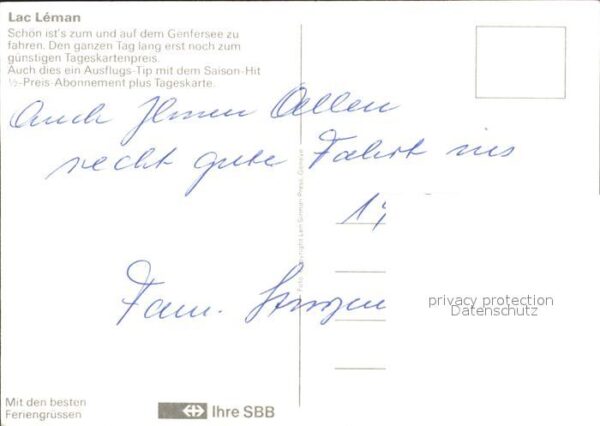 Lac Léman
Schön ist's zum und auf dem Genfersee zu
fahren. Den ganzen Tag lang erst noch zum
günstigen Tageskartenpreis.
Auch dies ein Ausflugs-Tip mit dem Saison-Hit
½-Preis-Abonnement plus Tageskarte.
Auch Ihnen Allen
recht gute Fahrt ins
Fam.
privacy protection
Datenschutz
Mit den besten
Feriengrüssen
Ihre SBB